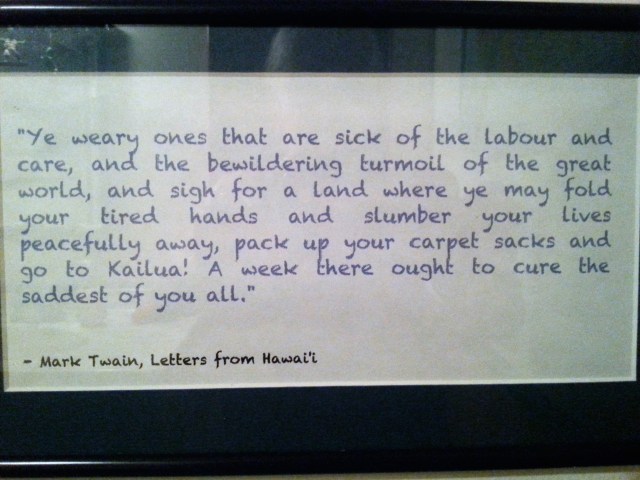 "Ye weary ones that are sick of the labour and
care, and the bewildering turmoil of the great
world, and sigh for a land where ye may fold
your tired hands and slumber your lives
peacefully away, pack up your carpet sacks and
go to Kailua! A week there ought to cure the
saddest of you all."
- Mark Twain, Letters from Hawai'i